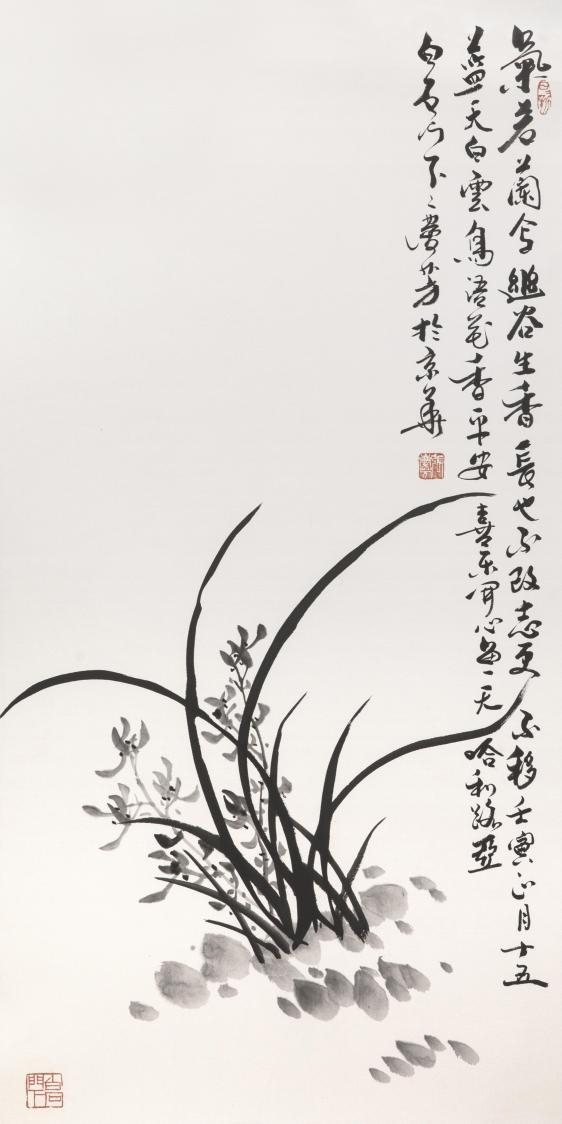 氣若蘭兮幽谷生香長也不改志更不移壬寅正月十五
藍天白雲鳥語花香平安喜乐開心每一天哈利路亞
白石门下：夢芳於京華